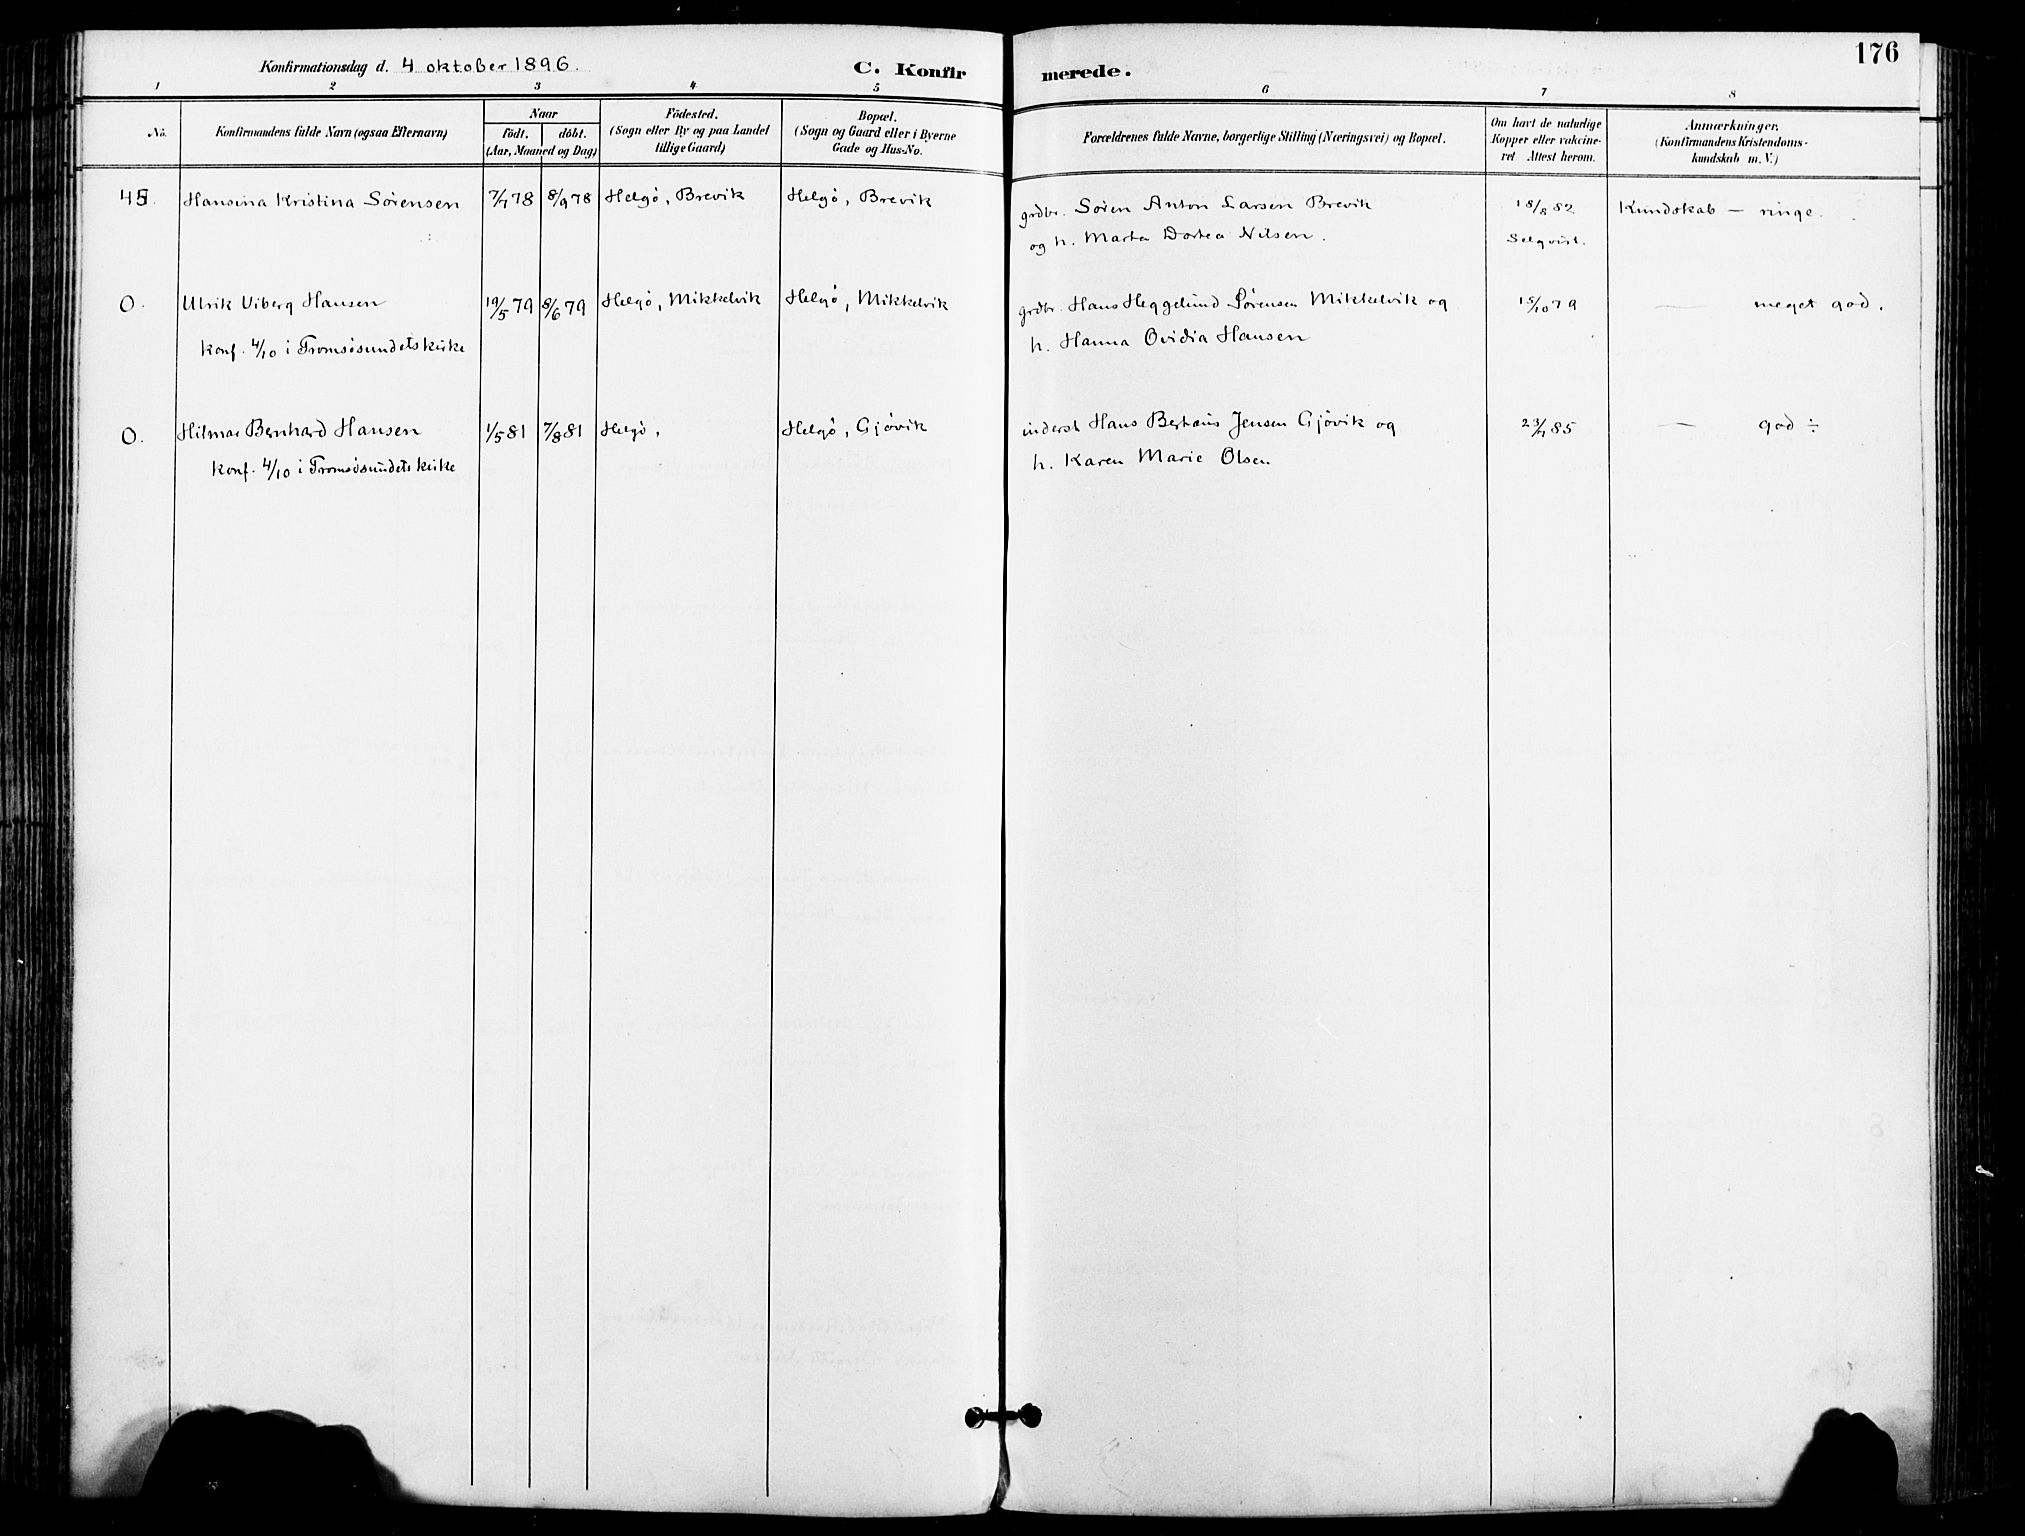 176
Konfirmationsdag d. 4 oktober 1896.
C. Konfirmerede.
1 2 3 4 5 6 7 8
No.
Konfirmandens fulde Navn (ogsaa Efternavn)
Naar
födt. döbt.
(Aar, Maaned og Dag)
Födested.
(Sogn eller By og paa Landet
tillige Gaard)
Bopæl.
(Sogn og Gaard eller i Byerne
Gade og Hus-No.
Forældrenes fulde Navne, borgerlige Stilling (Næringsvei) og Bopæl.
Om havt de naturlige
Kopper eller vakcine-
ret Attest herom.
Anmærkninger,
(Konfirmandens Kristendoms-
kundskab m. V.)
45. Hansina Kristina Sörensen 7/7 78 8/9 78 Helgö, Brevik Helgö, Brevik grdbr. Sören Anton Larsen Brevik 18/8 82. Kundskab — ringe.
og h. Marta Dortea Nilsen.
0. Ulrik Viberg Hansen 19/5 79 8/6 79 Helgö, Mikkelvik Helgö, Mikkelvik grdbr. Hans Heggelund Sörensen Mikkelvik og 15/10 79 — meget god.
konf. 4/10 i Tromsösundets kirke h. Hanna Ovidia Hansen
0. Hilmar Bernhard Hansen 1/5 81 7/8 81 Helgö, Helgö, Gjövik inderst Hans Berhaus Jensen Gjövik og 23/7 85 — god ÷
konf. 4/10 i Tromsösundets kirke h. Karen Marie Olsen